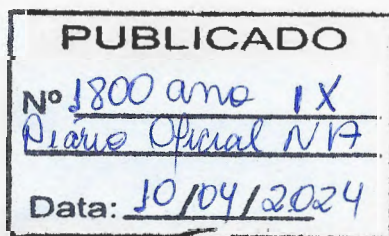 PUBLICADO
Nº 1800 ano IX
Diário Oficial NA
Data: 10/04/2024